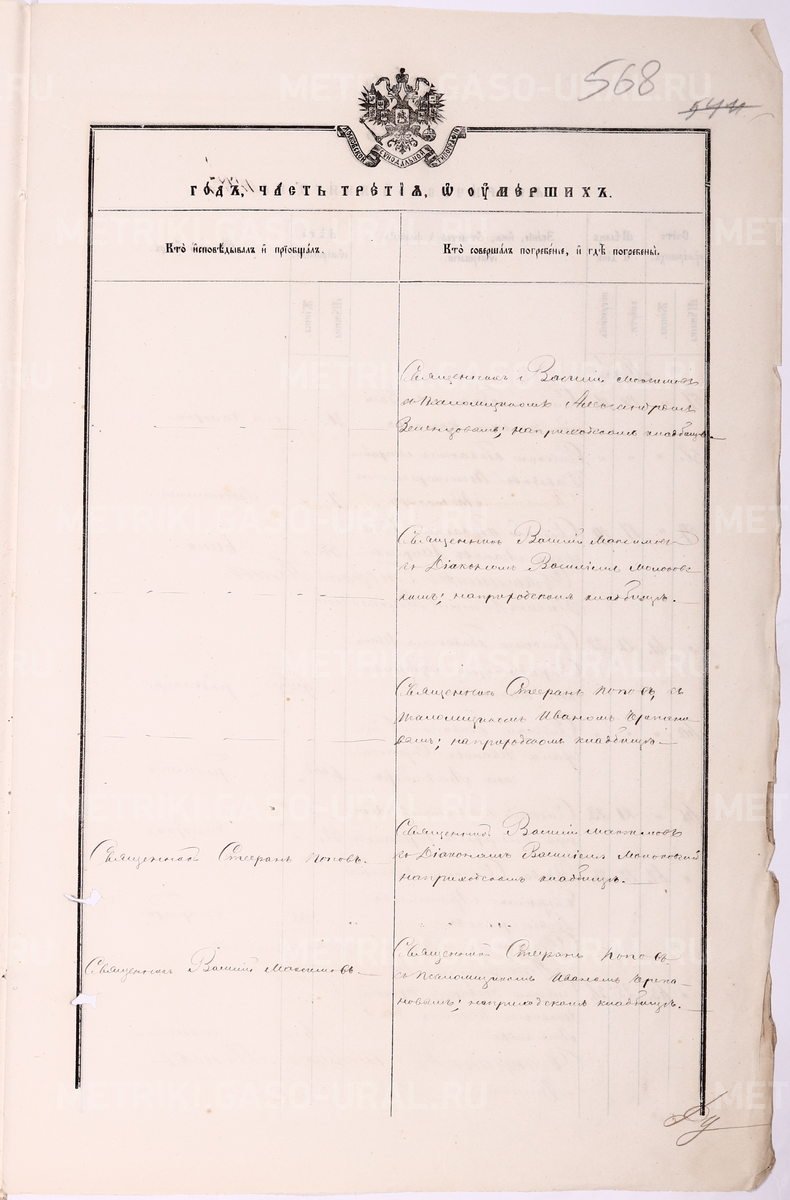 568
544
МОСКОВСКОЙ СѴНОДАЛЬНОЙ ТИПОГРАФІИ
ГО́ДЪ, ЧАСТЬ ТРЕ́ТІЯ, Ѿ ОУМЕ́РШИХЪ.
Кто̀ и҆сповѣ́дывалъ и҆ пріѡбща́лъ.
Кто̀ соверша́лъ погребе́ніе, и҆ гдѣ̀ погребены̀.
Священникъ Василій Максимовъ
съ Псаломщикомъ Александромъ
на приходскомъ кладбищѣ.
Священникъ Василій Максимовъ
съ Діакономъ Василіемъ
на приходскомъ кладбищѣ.
Священникъ Стефанъ Поповъ, съ
псаломщикомъ Иваномъ Черпано-
вымъ; на приходскомъ кладбищѣ.
Священникъ Стефанъ Поповъ.
Священникъ Василій Максимовъ
съ Діакономъ Василіемъ
на приходскомъ кладбищѣ.
Священникъ Василій Максимовъ.
Священникъ Стефанъ Поповъ
съ Псаломщикомъ Иваномъ Черпа-
новымъ; на приходскомъ кладбищѣ.
METRIKI.GASO-URAL.RU